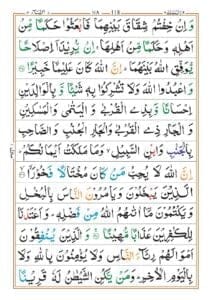 وَاِنْ خِفْتُمْ شِقَاقَ بَيْنِهِمَا فَابْعَثُوْا حَكَمًا مِّنْ
اَهْلِهٖ وَحَكَمًا مِّنْ اَهْلِهَا ۚ اِنْ يُّرِيْدَاۤ اِصْلَاحًا
يُّوَفِّقِ اللّٰهُ بَيْنَهُمَا ؕ اِنَّ اللّٰهَ كَانَ عَلِيْمًا خَبِيْرًا
وَاعْبُدُوا اللّٰهَ وَلَا تُشْرِكُوْا بِهٖ شَيْئًا وَّبِالْوَالِدَيْنِ
اِحْسَانًا وَّبِذِى الْقُرْبٰى وَالْيَتٰمٰى وَالْمَسٰكِيْنِ
وَالْجَارِ ذِى الْقُرْبٰى وَالْجَارِ الْجُنُبِ وَالصَّاحِبِ
بِالْجَنْۢبِ وَابْنِ السَّبِيْلِ ۙ وَمَا مَلَكَتْ اَيْمَانُكُمْ ؕ
اِنَّ اللّٰهَ لَا يُحِبُّ مَنْ كَانَ مُخْتَالًا فَخُوْرًا
الَّذِيْنَ يَبْخَلُوْنَ وَيَاْمُرُوْنَ النَّاسَ بِالْبُخْلِ
وَيَكْتُمُوْنَ مَاۤ اٰتٰىهُمُ اللّٰهُ مِنْ فَضْلِهٖ ؕ وَاَعْتَدْنَا
لِلْكٰفِرِيْنَ عَذَابًا مُّهِيْنًا وَالَّذِيْنَ يُنْفِقُوْنَ
اَمْوَالَهُمْ رِئَآءَ النَّاسِ وَلَا يُؤْمِنُوْنَ بِاللّٰهِ وَلَا
بِالْيَوْمِ الْاٰخِرِ ؕ وَمَنْ يَّكُنِ الشَّيْطٰنُ لَهٗ قَرِيْنًا